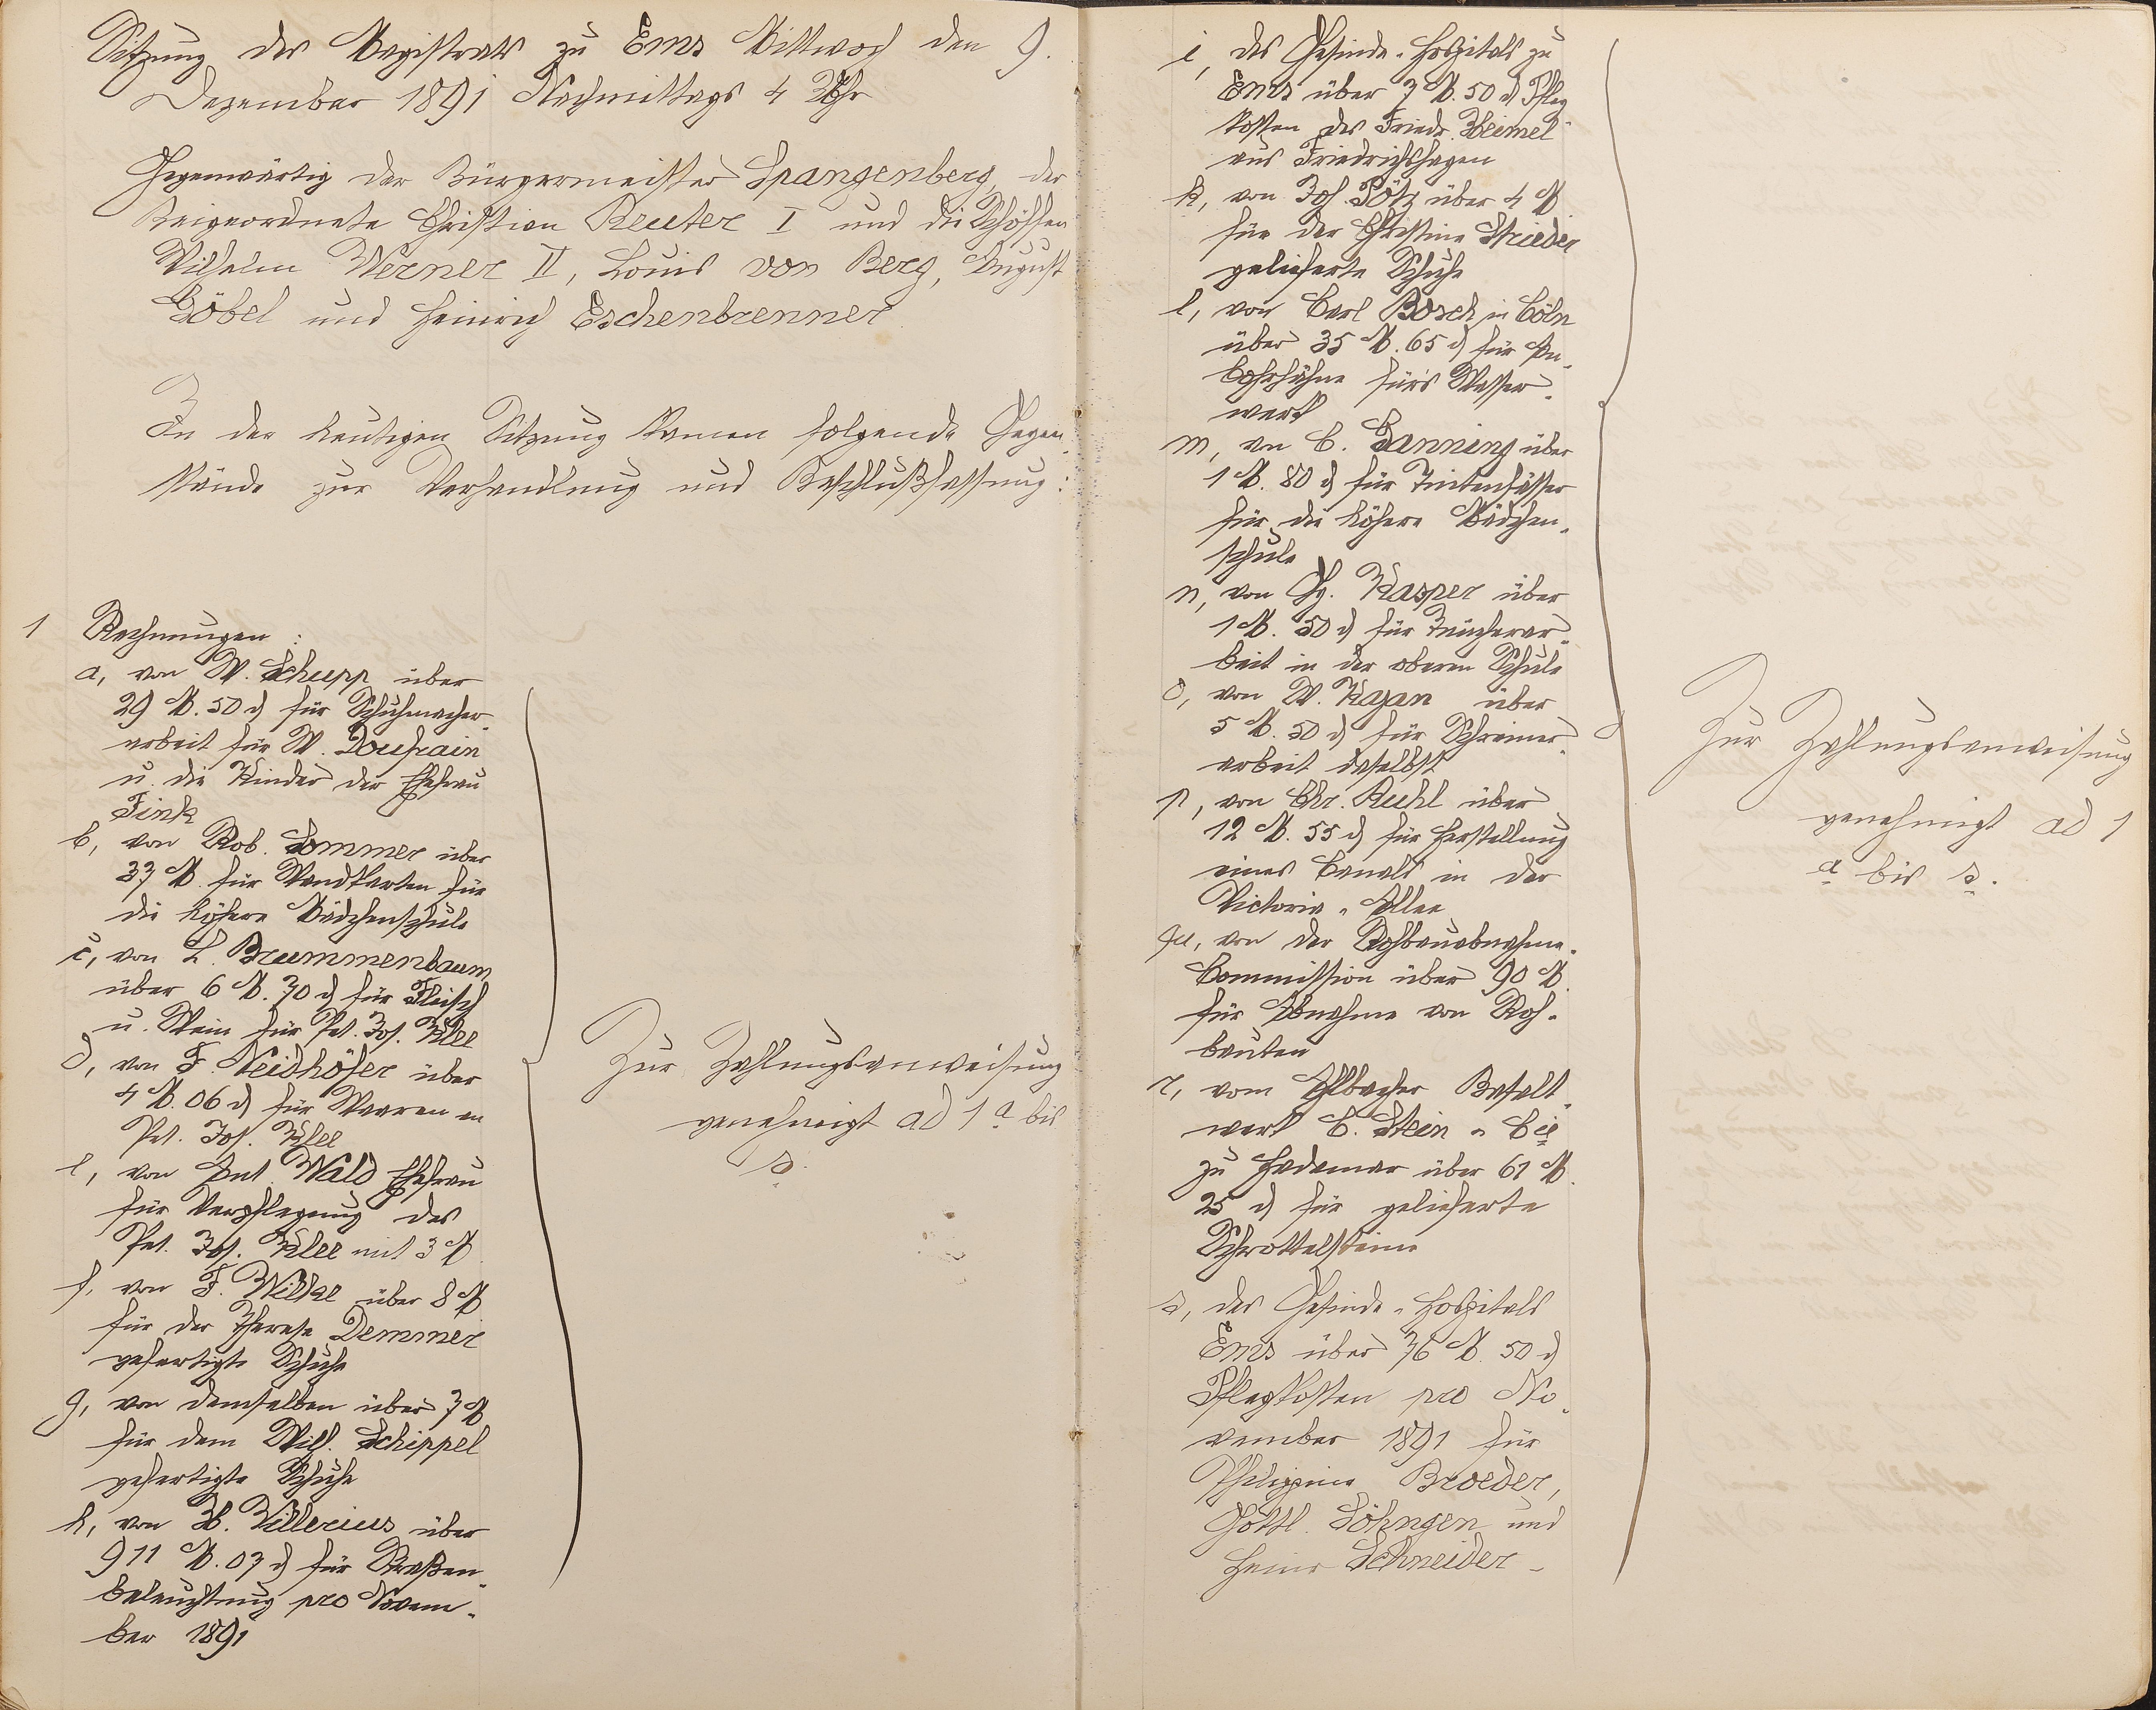 Sitzung des Magistrats zu Ems Mittwoch den 9.
Dezember 1891 Nachmittags 4 Uhr
Gegenwärtig der Bürgermeister Spangenberg, der
Beigeordnete Christian Reuter I und die Schöffen
Wilhelm Werner II, Louis von Berg, August
Göbel und Heinrich Eschenbrenner
In der heutigen Sitzung kamen folgende Gegen-
stände zur Verhandlung und Beschlußfassung:
1 Rechnungen:
a, von W. Schupp über
29 M. 50 ₰ für Schuhmacher-
arbeit für W. Doufrain
u. die Kinder der Ehefrau
Fink
b, von Rob. Sommer über
37 M. für Wandkarten für
die höhere Mädchenschule
c, von L. Brummenbaum
über 6 M. 70 ₰ für Fleisch
u. Wein für Pet. Jos. Klee
d, von F. Neidhöfer über
4 M. 06 ₰ für Waaren an
Pet. Jos. Klee
e, von Ant. Wald Ehefrau
für Verpflegung des
Pet. Jos. Klee mit 3 M
f, von F. Wilke über 8 M
für der Therese Demmer
gefertigte Schuhe
g, von demselben über 7 M
für dem Wilh. Schippel
gefertigte Schuhe
h, von H. Villerius über
911 M. 07 ₰ für Straßen-
beleuchtung pro Novem-
ber 1891
Zur Zahlungsanweisung
genehmigt ad 1 a bis
s.
i, des Gesinde-Hospitals zu
Ems über 7 M. 50 ₰ Pfleg-
kosten des Friedr. Heimel
aus Friedrichshagen
k, von Jos. Pötz über 4 M
für der Christine Strieder
gelieferte Schuhe
l, von Carl Bosch in Cöln
über 35 M. 65 ₰ für An-
bohrhähne für's Wasser-
werk
m, von C. Lanning über
1 M. 80 ₰ für Tintenfässer
für die höhere Mädchen-
schule
n, von Ph. Kasper über
1 M. 50 ₰ für Tüncherar-
beit in der oberen Schule
o, von W. Kazan über
5 M. 50 ₰ für Schreiner-
arbeit daselbst
p, von Chr. Ruhl über
12 M. 55 ₰ für Herstellung
eines Canals in der
Victoria-Allee
qu, von der Rohbauabnahme-
Commission über 90 M.
für Abnahme von Roh-
bauten
r, vom Ahlbacher Basalt-
werk C. Stein & Cie
zu Hadamar über 61 M.
25 ₰ für gelieferte
Schrottelsteine
s, des Gesinde-Hospitals
Ems über 76 M. 50 ₰
Pflegkosten pro No-
vember 1891 für
Philippine Broeder,
Gottl. Söhngen und
Heinr. Schneider
Zur Zahlungsanweisung
genehmigt ad 1
a bis s.